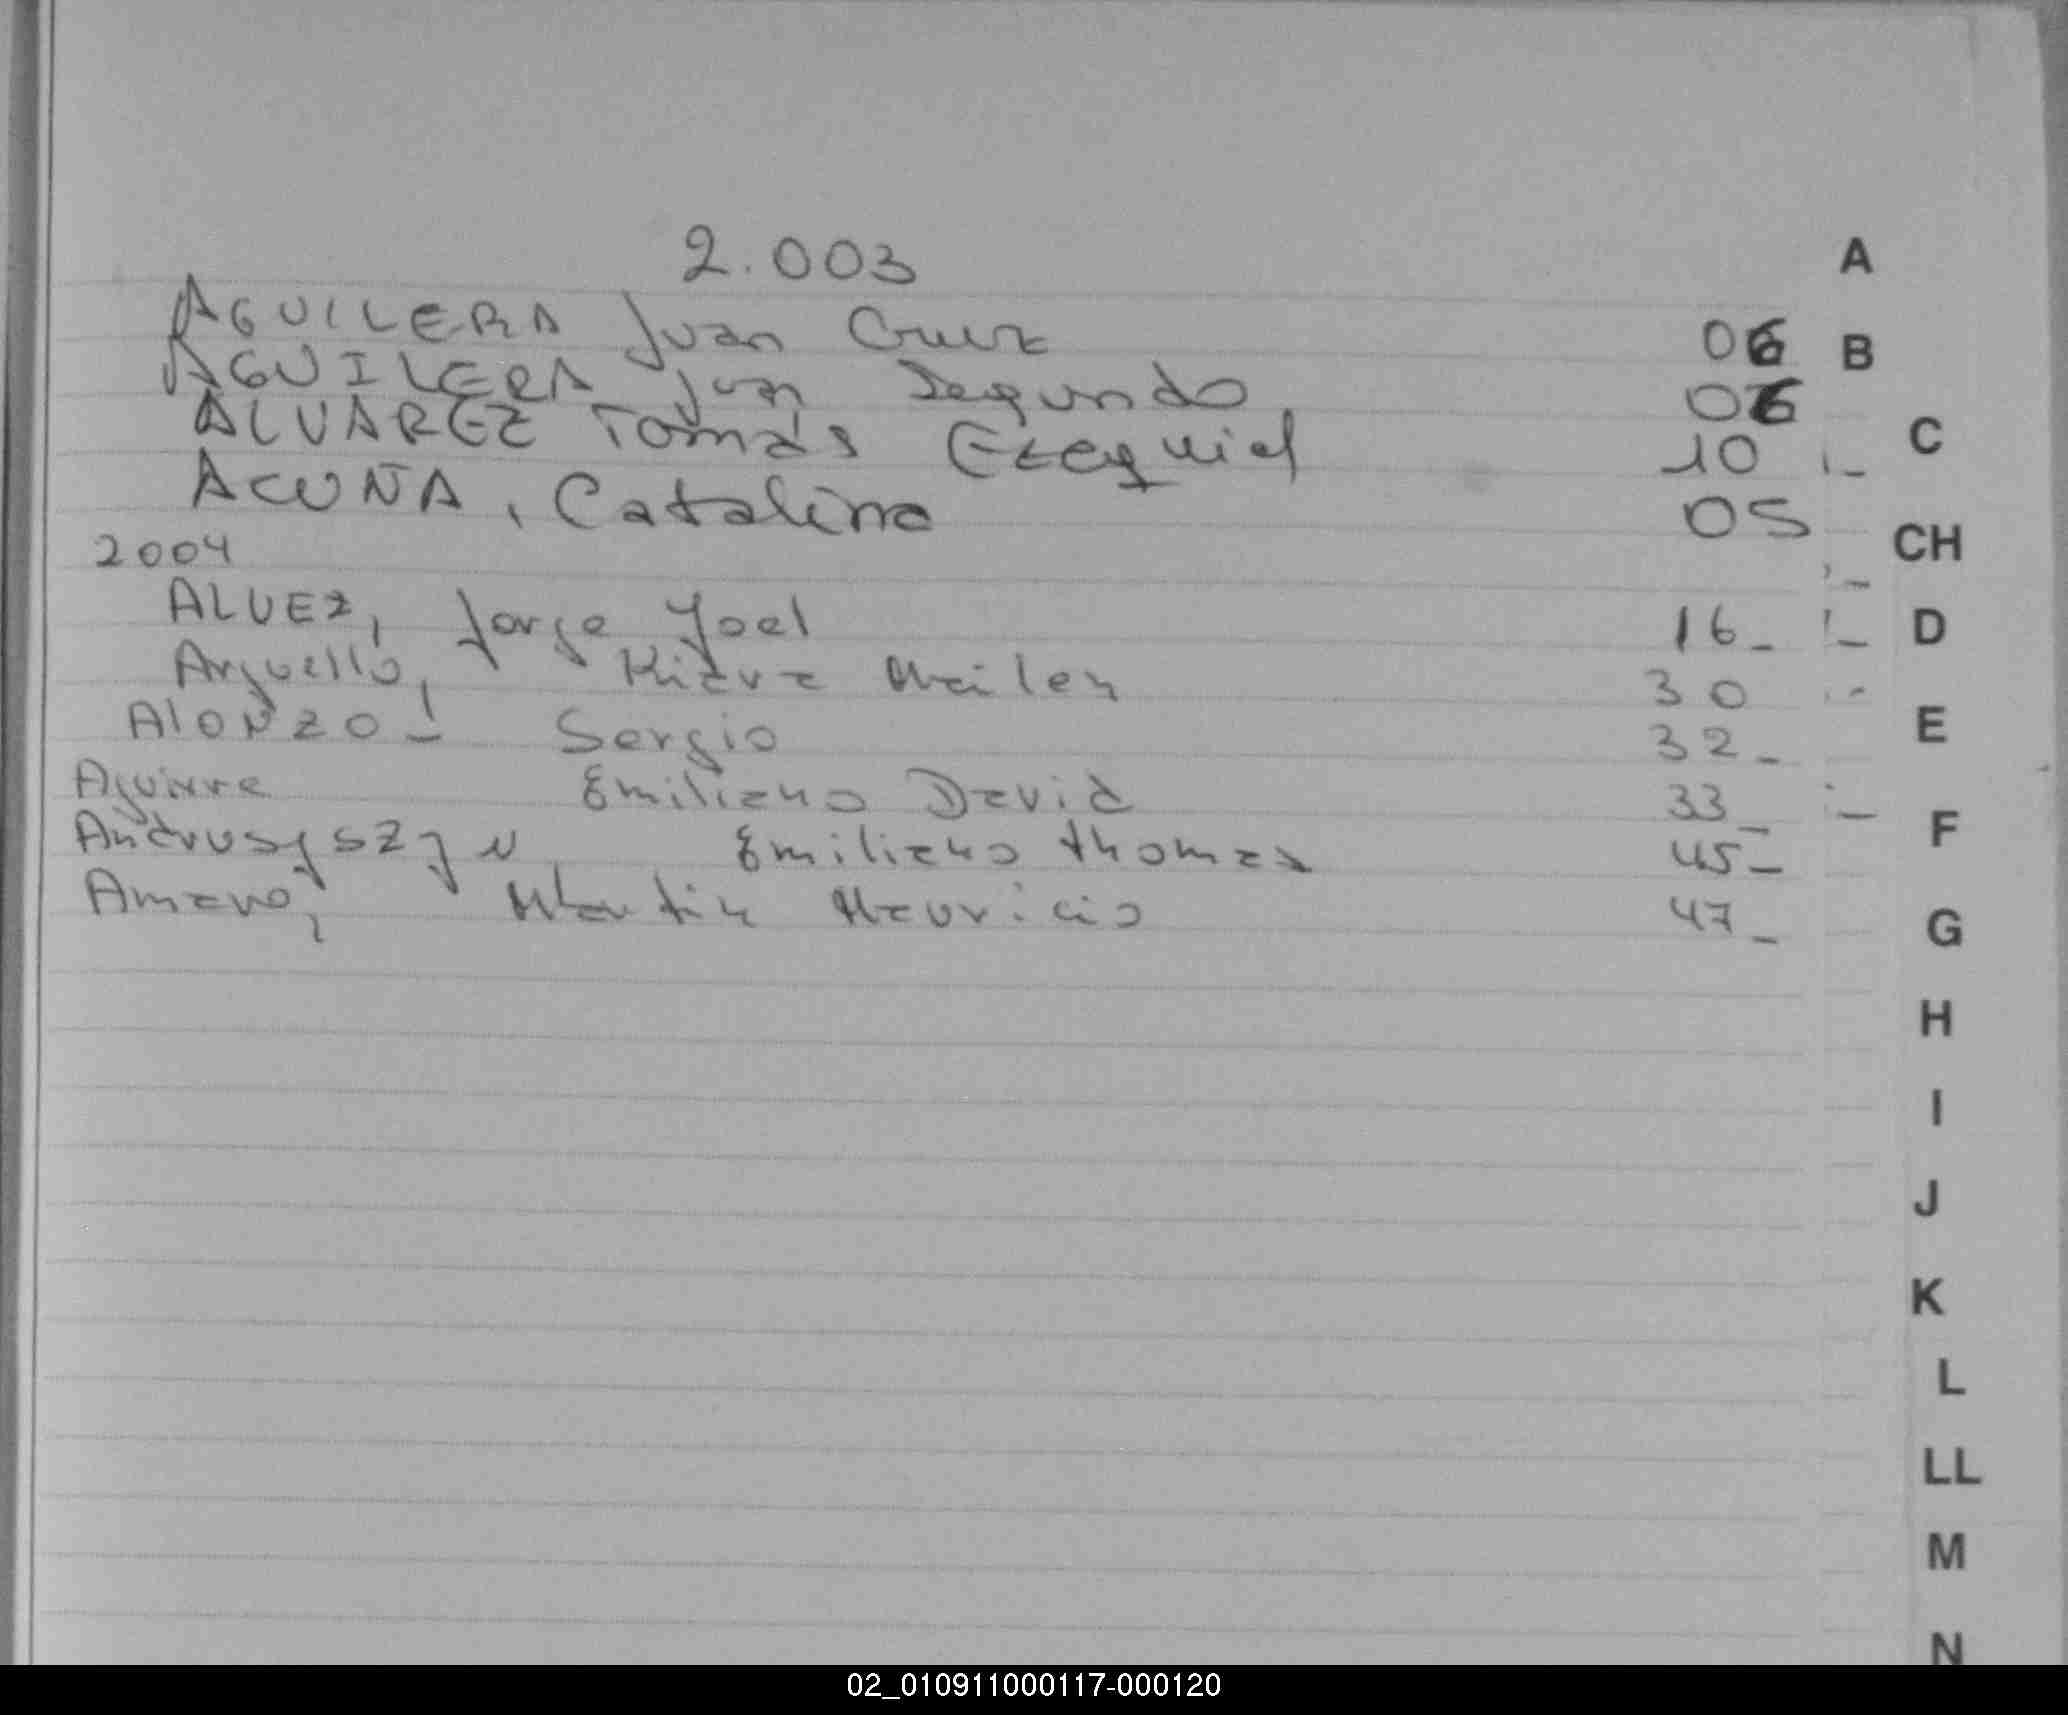 2.003
A
AGUILERA Juan Cruz 06
B
AGUILERA Juan Segundo 06
ALVAREZ Tomás Ezequiel 10
C
ACUÑA, Catalina 05
CH
2004
ALVEZ, Jorge Joel 16_
D
Arguello, Kiara Mailen 30
E
Alonzo Sergio 32_
Aguirre Emiliano David 33_
F
Emiliano Thomas 45_
Amaro, Martin Mauricio 47_
G
H
I
J
K
L
LL
M
N
02_010911000117-000120